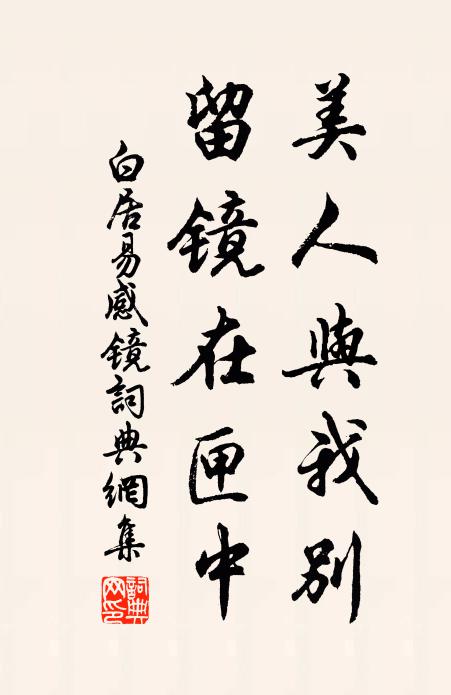 美人與我別
留镜在匣中
白居易感镜詞典網集
詞典网印